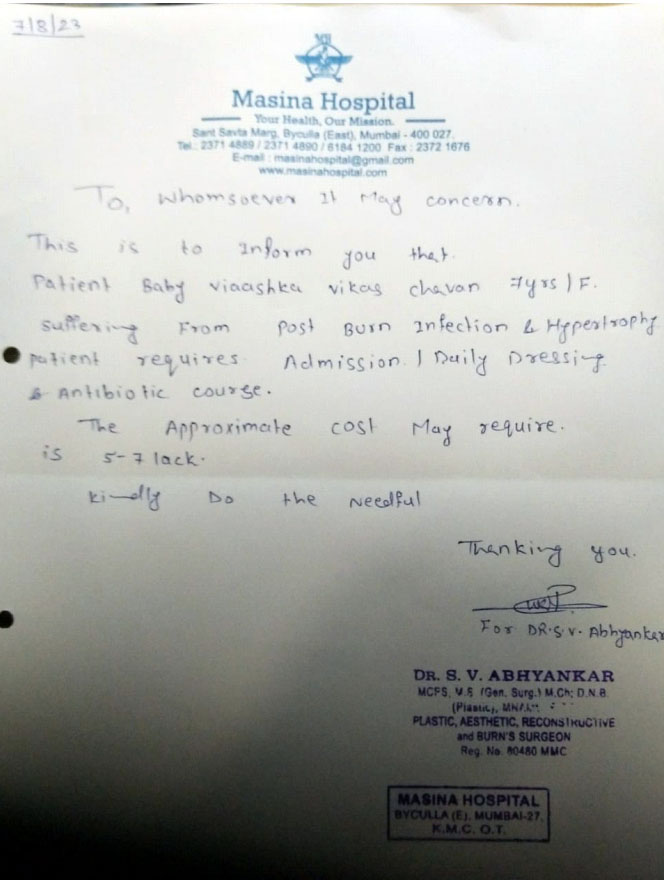 7/8/23
Masina Hospital
Your Health, Our Mission.
Sant Savta Marg, Byculla (East), Mumbai - 400 027.
Tel.: 2371 4889 / 2371 4890 / 6184 1200 Fax : 2372 1676
E-mail : masinahospital@gmail.com
www.masinahospital.com
To, Whomsoever It May concern.
This is to Inform you that.
Patient Baby viaashka vikas chavan 7yrs / F.
suffering From Post Burn Infection & Hypertrophy
patient requires. Admission. / Daily Dressing
& Antibiotic course.
The Approximate cost May require.
is 5-7 lack.
kindly Do the Needful
Thanking you.
For DR.S.V. Abhyankar
DR. S. V. ABHYANKAR
MCPS, M.S. (Gen. Surg.) M.Ch; D.N.B.
(Plastic),
PLASTIC, AESTHETIC, RECONSTRUCTIVE
and BURN'S SURGEON
Reg. No. 80480 MMC
MASINA HOSPITAL
BYCULLA (E), MUMBAI-27.
K.M.C. O.T.